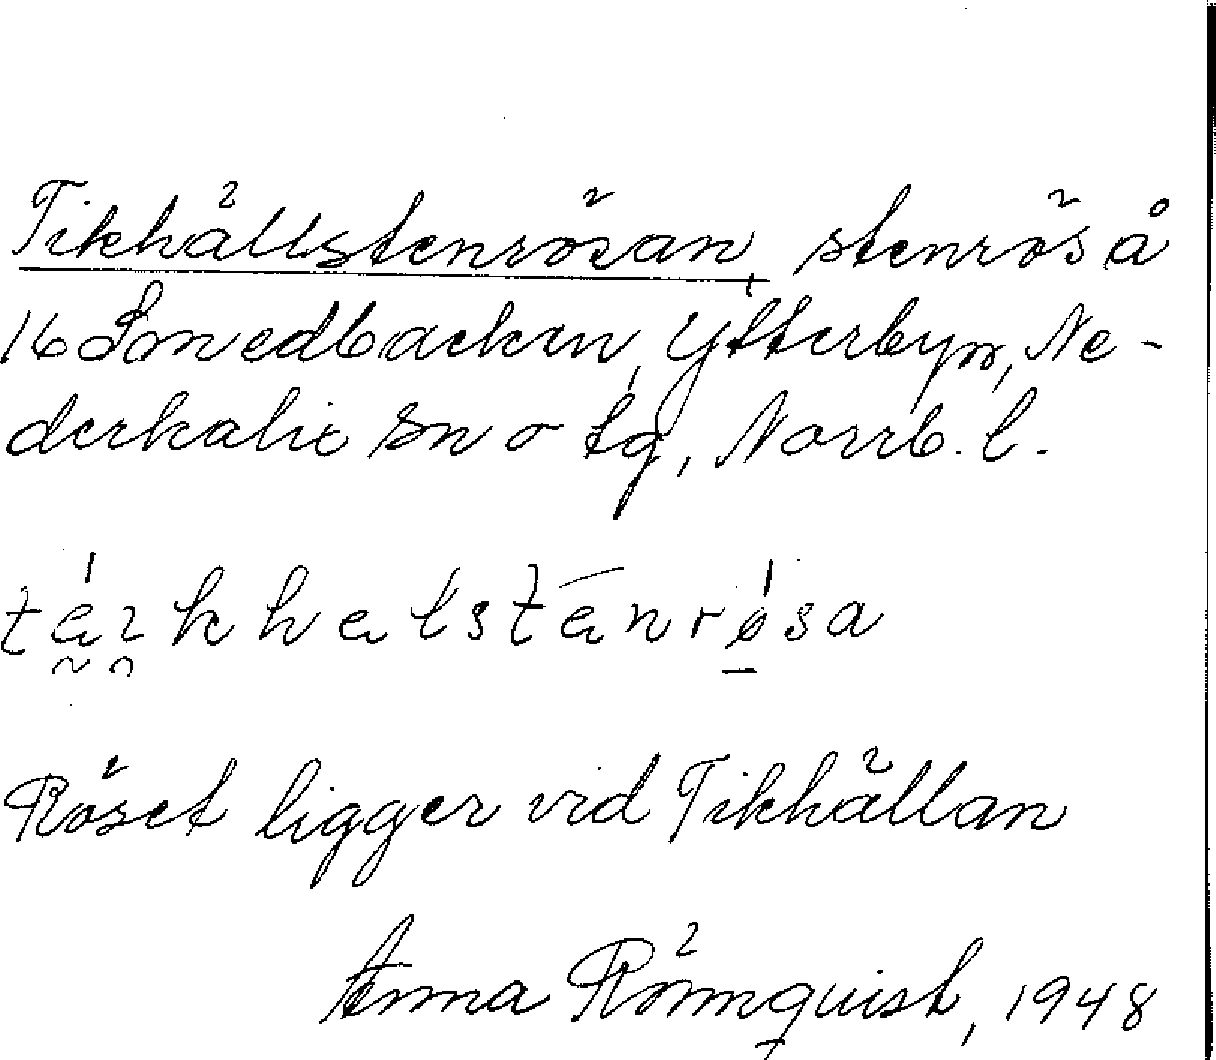 Tikhällstenrösan, stenrös å
16 Smedbacken, Ytterbyn, Ne-
derkalix sn o tg, Norrb. l.
Röset ligger vid Tikhällan
Anna Rönnquist, 1948